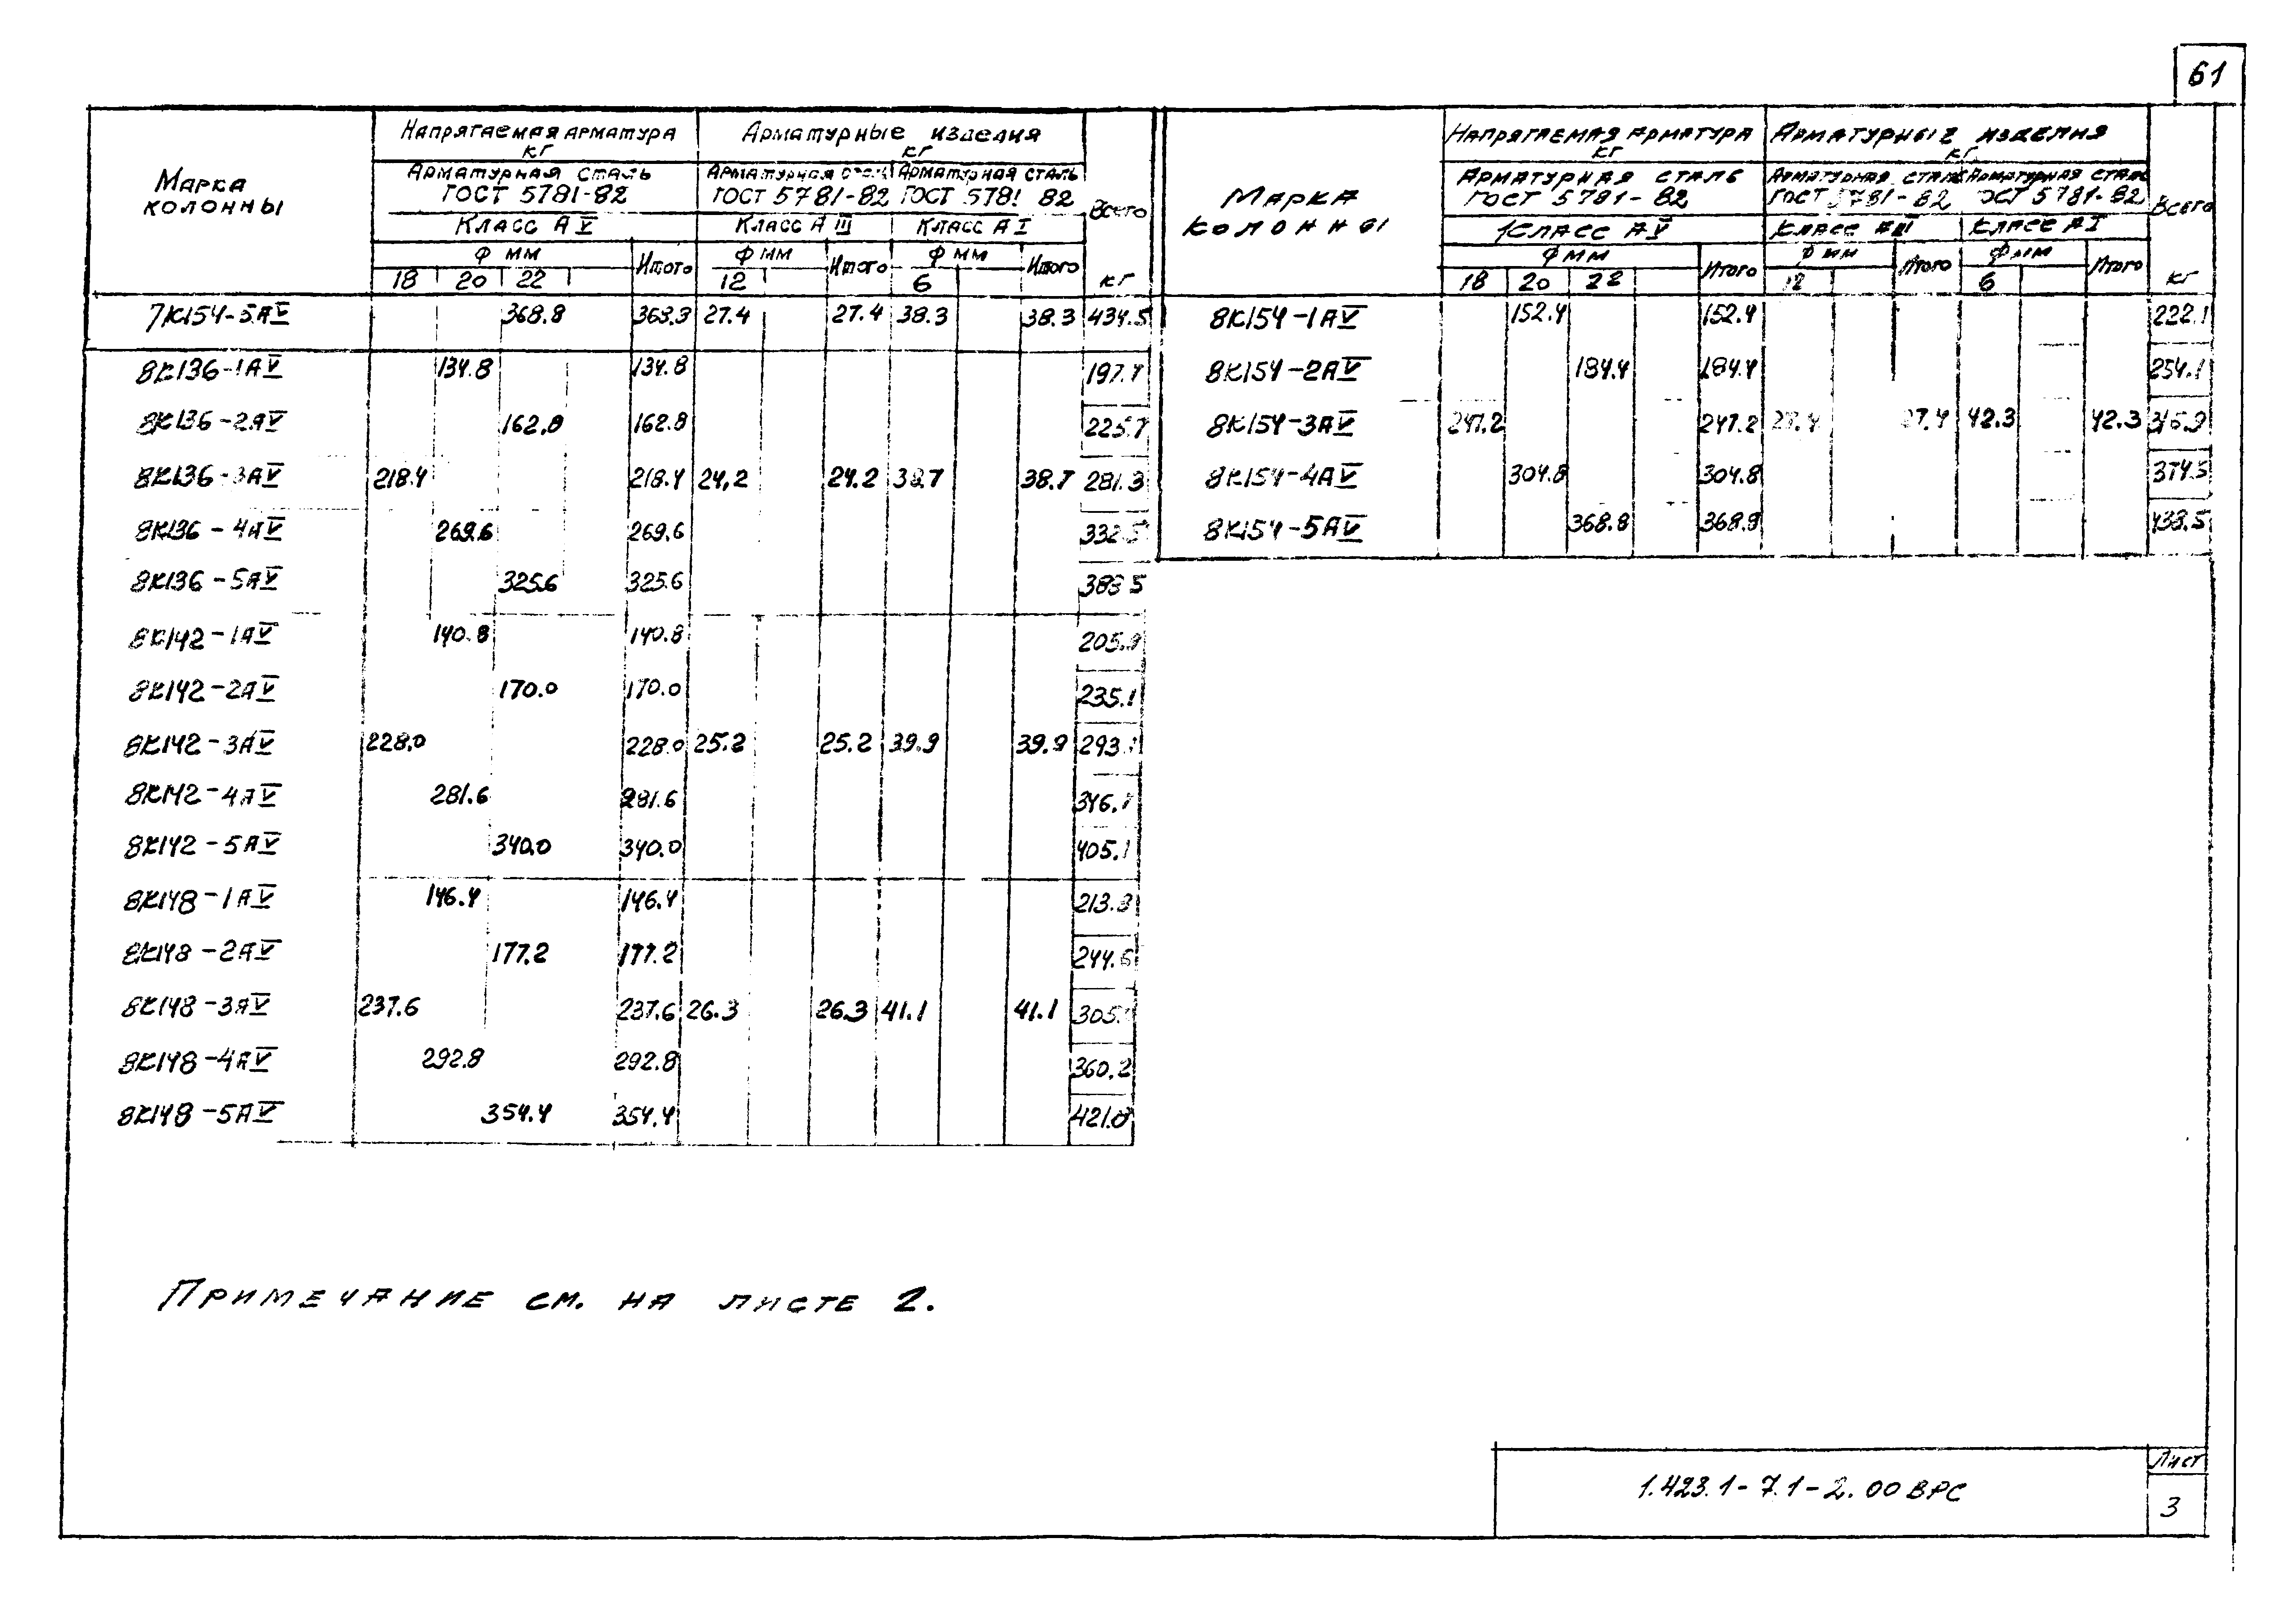 61
Марка колонны
Напрягаемая арматура кг
Арматурные изделия кг
Всего кг
Арматурная сталь ГОСТ 5781-82
Арматурная сталь ГОСТ 5781-82
Арматурная сталь ГОСТ 5781 82
Класс А V
Класс А III
Класс А I
Ф мм Итого Ф мм Итого Ф мм Итого
18 20 22 12 6
7К154-5АV 368.8 27.4 27.4 38.3 38.3 434.5
8К136-1АV 134.8 134.8 197.7
8К136-2АV 162.8 162.8 225.7
8К136-3АV 218.4 218.4 24,2 24.2 38.7 38.7 281.3
8К136-4АV 269.6 269.6 332.5
8К136-5АV 325.6 325.6
8К142-1АV 140.8 140.8 205.9
8К142-2АV 170.0 170.0 235.1
8К142-3АV 228.0 228.0 25.2 25.2 39.9 39.9 293.1
8К142-4АV 281.6 281.6 346.7
8К142-5АV 340.0 340.0 405.1
8К148-1АV 146.4 146.4 213.8
8К148-2АV 177.2 177.2 244.6
8К148-3АV 237.6 237.6 26.3 26.3 41.1 41.1
8К148-4АV 292.8 292.8 360.2
8К148-5АV 354.4 354.4 421.8
Марка колонны
Напрягаемая арматура кг
Арматурные изделия кг
Всего кг
Арматурная сталь ГОСТ 5781-82
Арматурная сталь ГОСТ 5781-82
Арматурная сталь ГОСТ 5781-82
Класс АV
Класс АIII
Класс АI
Ф мм Итого Ф мм Итого Ф мм Итого
18 20 22 12 6
8К154-1АV 152.4 152.4 222.1
8К154-2АV 184.4 184.4 254.1
8К154-3АV 247.2 247.2 27.4 27.4 42.3 42.3
8К154-4АV 304.8 304.8 374.5
8К154-5АV 368.8 368.8 438.5
Примечание см. на листе 2.
1.423.1-7.1-2.00 ВРС
Лист
3